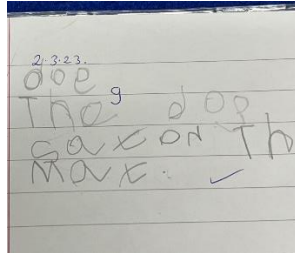 2.3.23.
doe
The g dop
sat on Th
Mat.